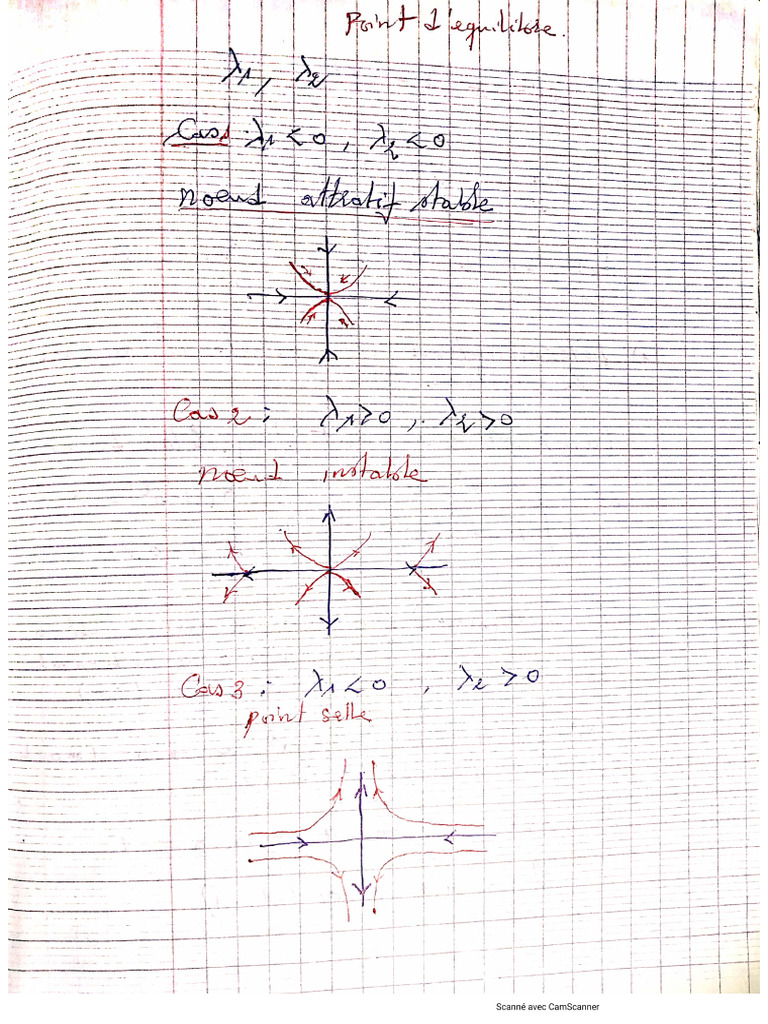 Point d'equilibre.
λ1, λ2
Cas1 : λ1 < 0, λ2 < 0
noeud attratif stable
Cas 2 : λ1 > 0, λ2 > 0
noeud instable
Cas 3 : λ1 < 0, λ2 > 0
point selle
Scanné avec CamScanner